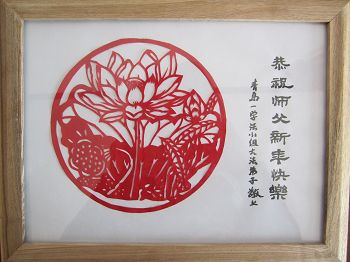 恭祝师父新年快樂
青島一学法小组大法弟子敬上